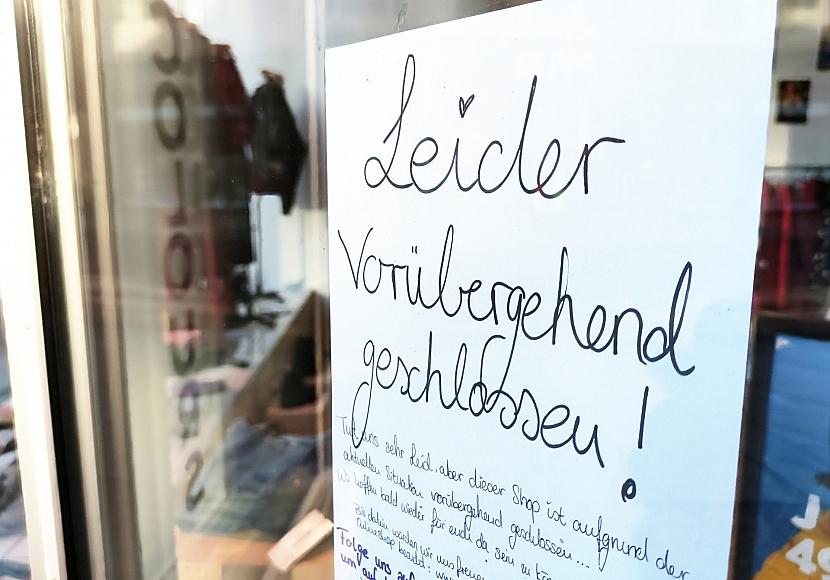 Leider
Vorübergehend
geschlossen!
Tut uns sehr Leid, aber dieser Shop ist aufgrund der
aktuellen Situation vorübergehend geschlossen...
Wir hoffen bald wieder für euch da sein zu
Bis dahin würden wir uns freuen
Onlineshop
Folge uns auf
um auf
J
40